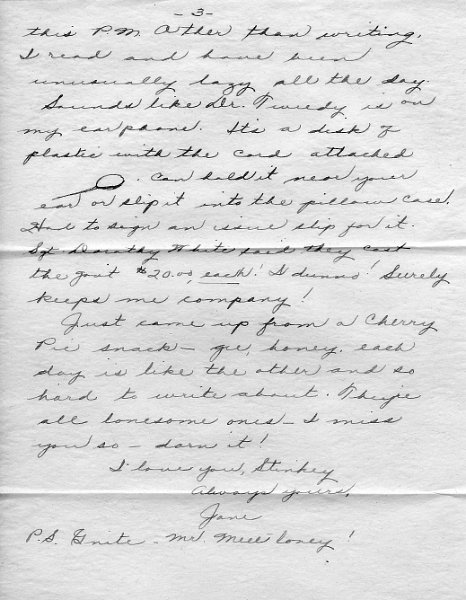 -3-
this P.M. Other than writing,
I read and have been
unusually lazy all the day.
Sounds like Dr. Tweedy is on
my earphone. It's a disk of
plastic with the cord attached
. Can hold it near your
ear or slip it into the pillow case.
Had to sign an issue slip for it.
Sgt. Dorothy White said they cost
the gov't $20.00, each! I dunno! Surely
keeps me company!
Just came up from a Cherry
Pie snack - gee, honey, each
day is like the other and so
hard to write about. They're
all lonesome ones - I miss
you so - darn it!
I love you, Stinkey
Always yours,
Jane
P.S. Gnite - Mr.